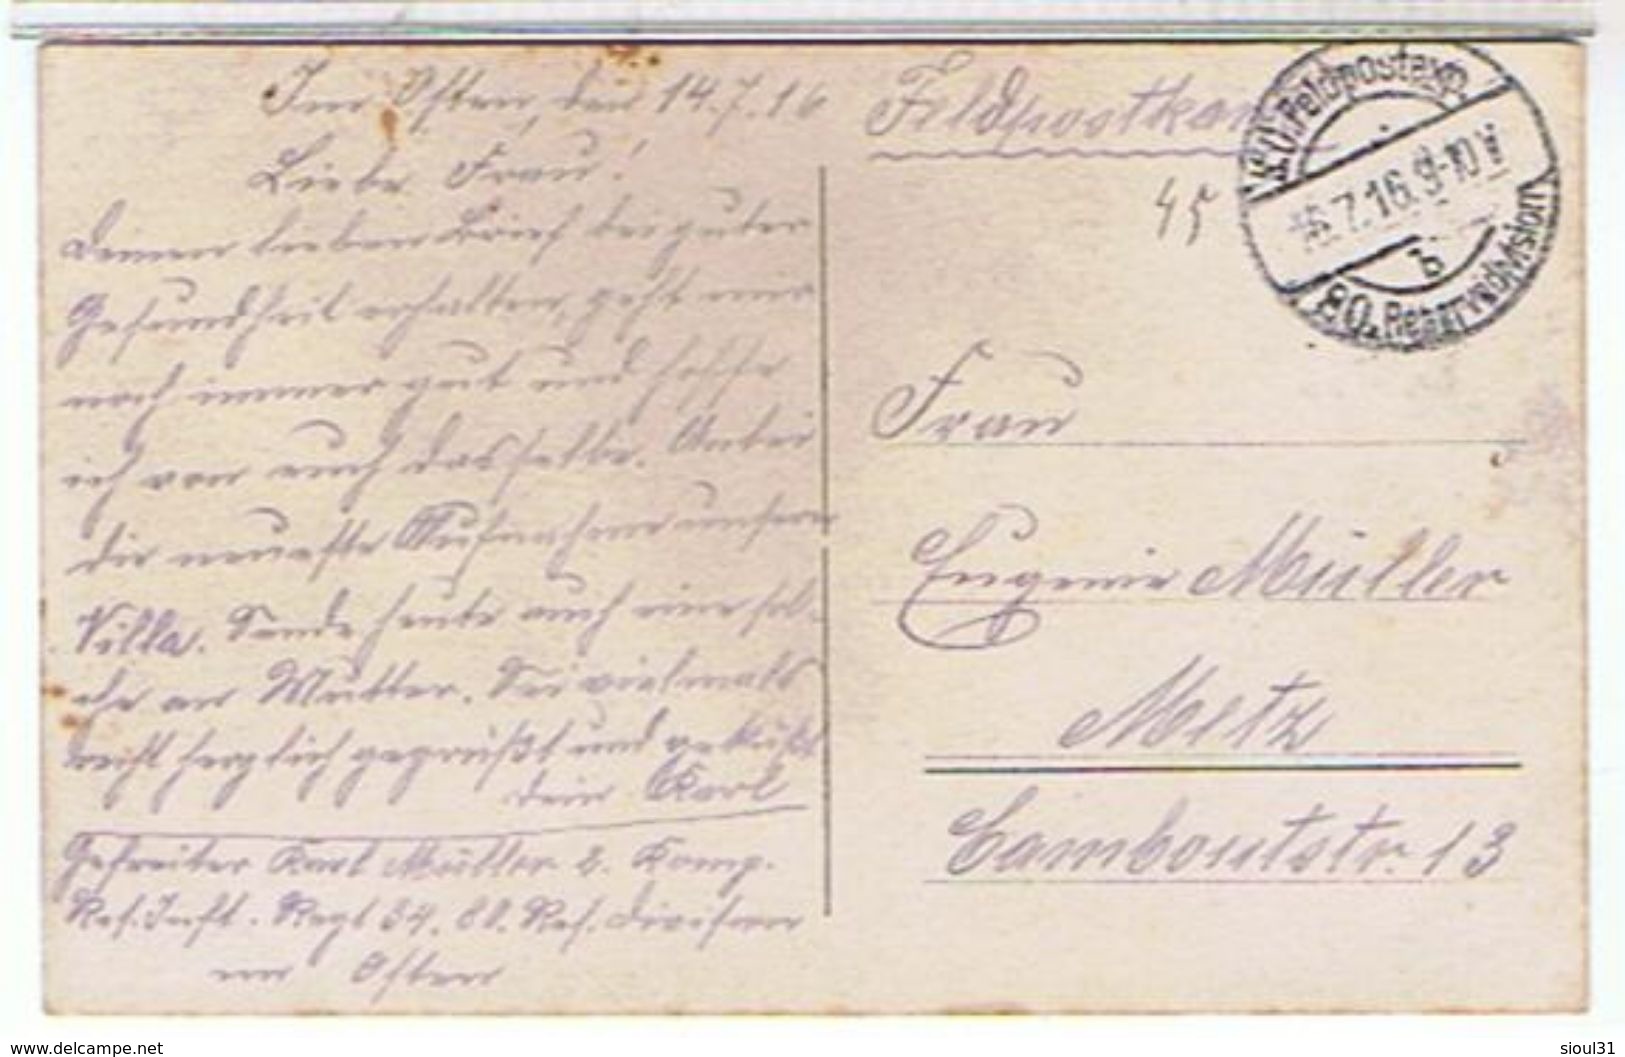 Im Osten, den 14.7.16
Liebe Frau!
Deinen lieben Brief bei guter
Gesundheit erhalten, geht mir
noch immer gut und hoffe
ich von euch dasselbe. Anbei
die neueste Aufnahme unserer
Villa. Sende heute auch eine sol-
che an Mutter. Sei vielmals
recht herzlich gegrüßt und geküßt
dein Karl
Gefreiter Karl Müller 2. Komp.
Res. Inft. Regt 34. 80. Res. Division
im Osten
Feldpostkar
45
K.D. Feldpostexp.
7.16. 9-10 V
b
80. Reservedivision
Frau
Eugenie Müller
Metz
Camboutstr. 13
www.delcampe.net
sioul31